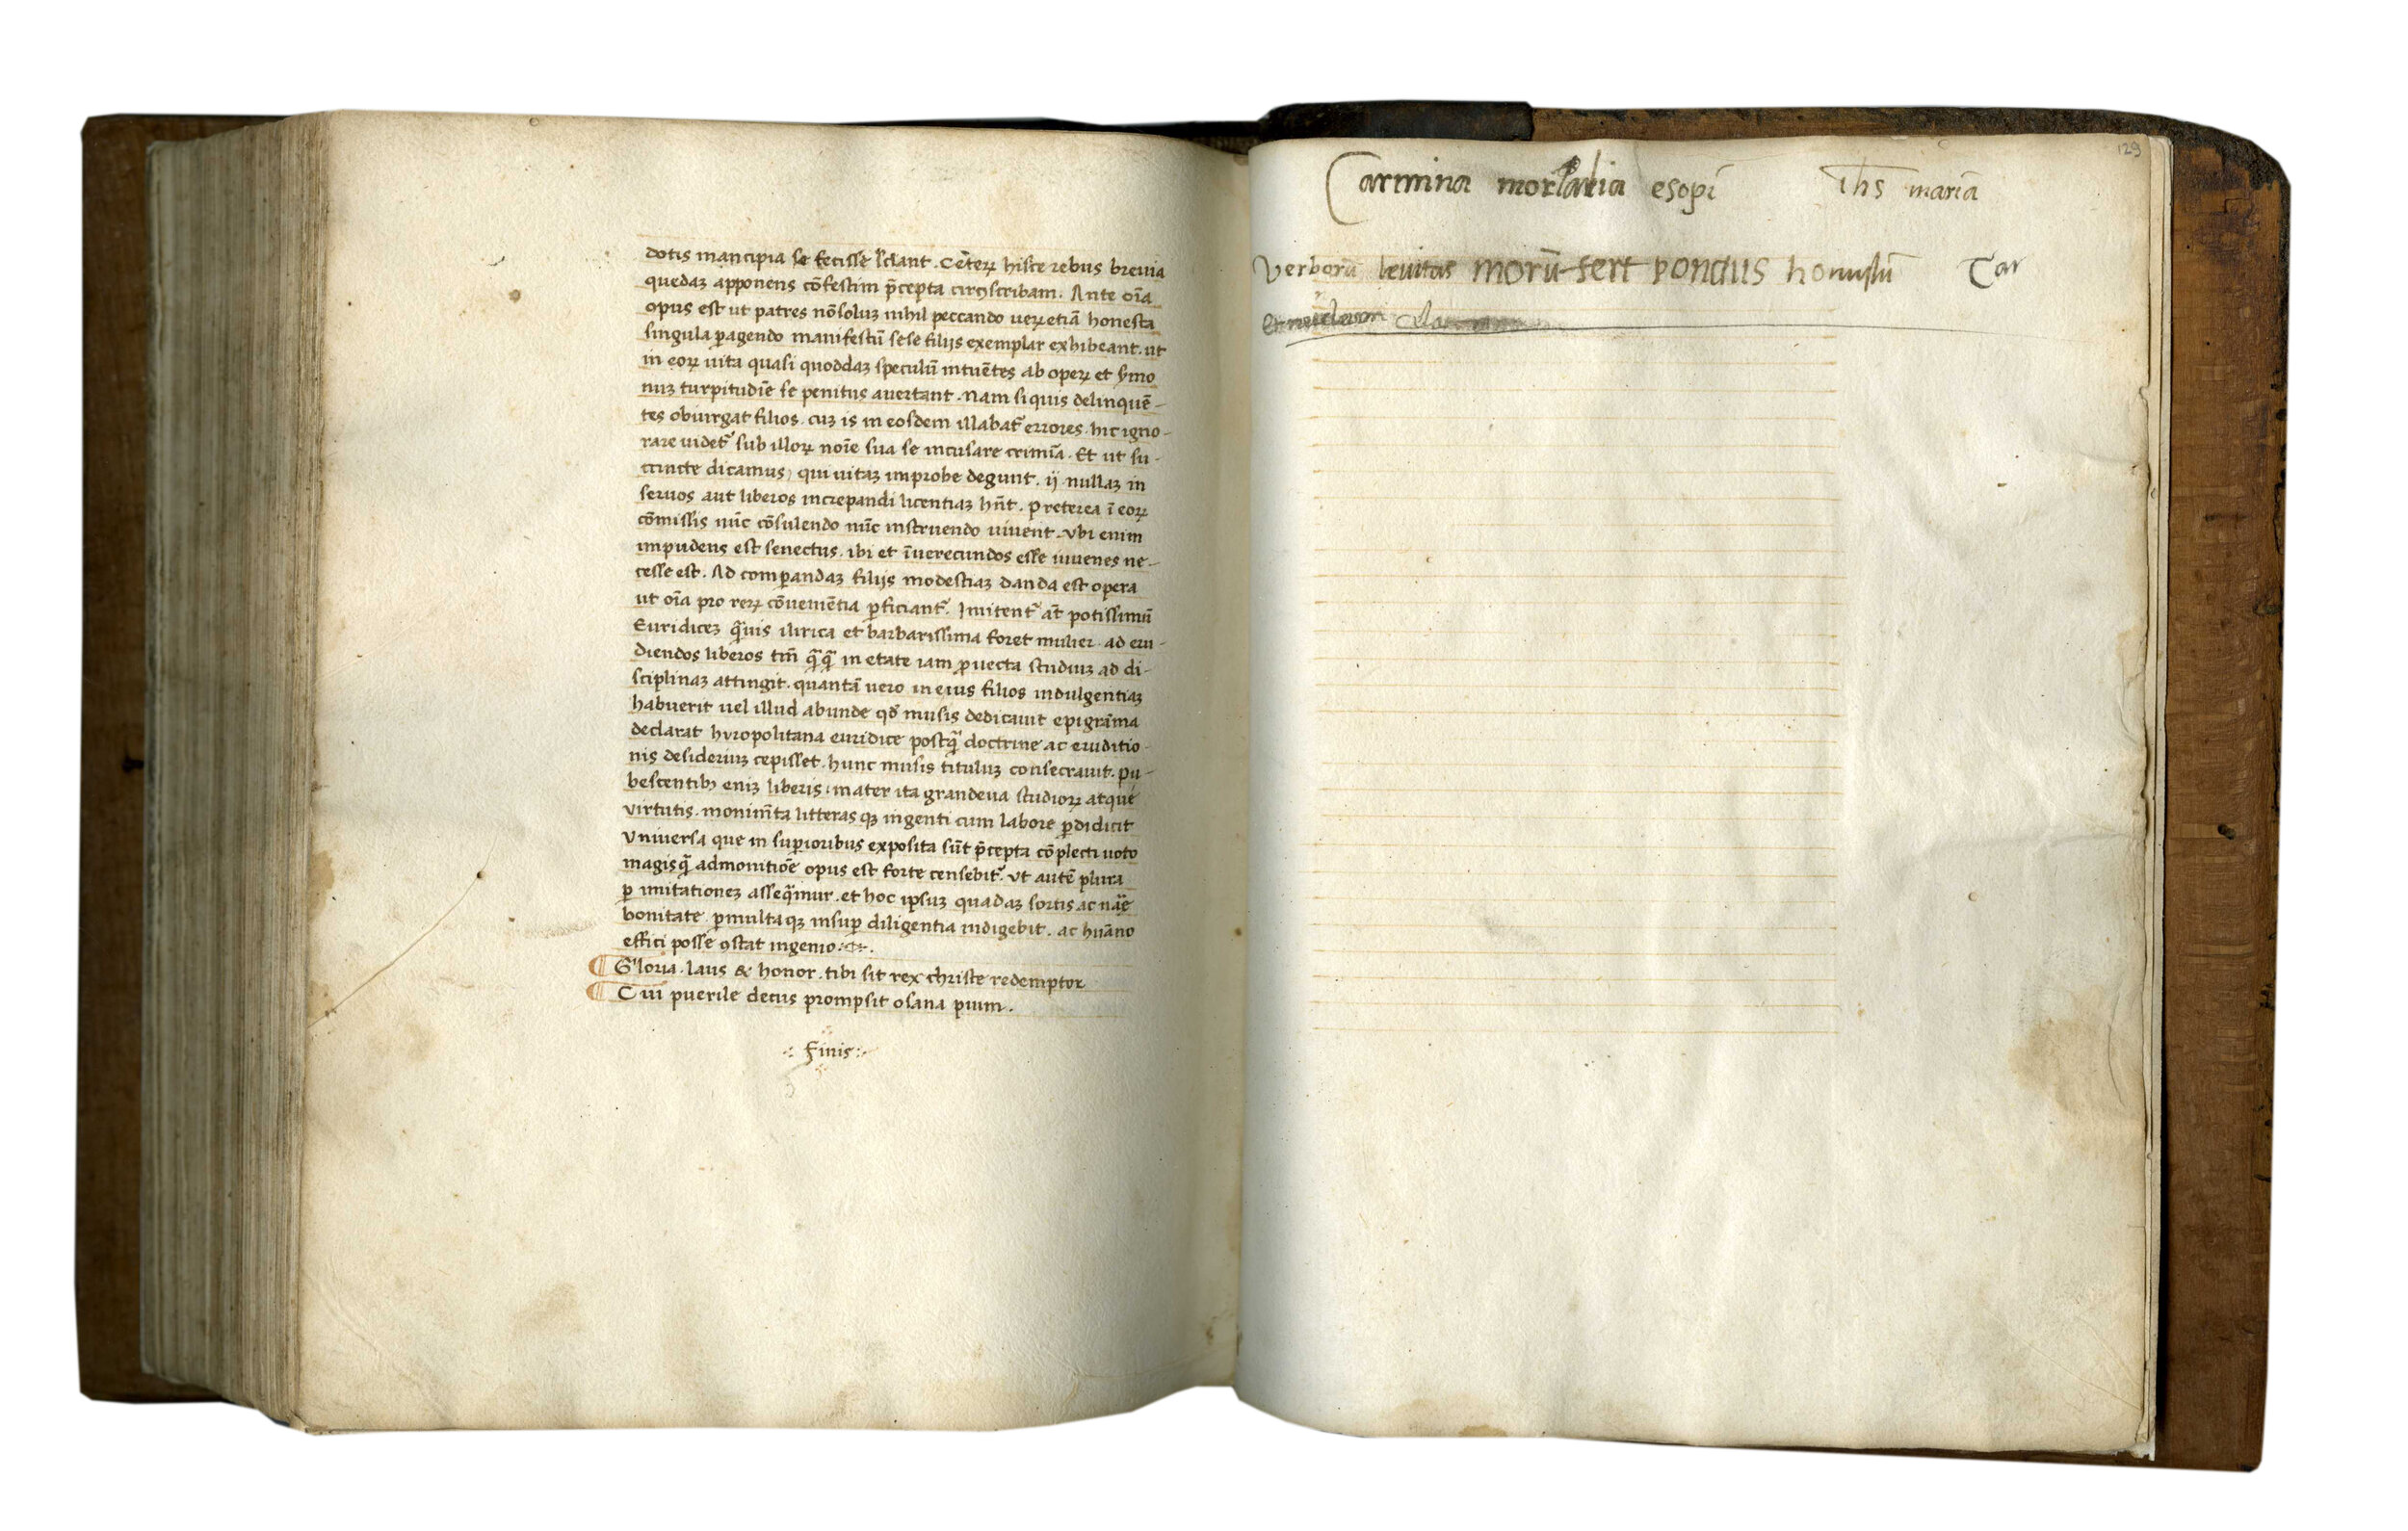 dotis mancipia se fecisse sciant. Ceterꝝ hisce rebus breuia
quedaꝫ apponens cōfestim p̄cepta circūscribam. Ante oīa
opus est ut patres nōsoluꝫ nihil peccando ueꝝetiā honesta
singula ꝑagendo manifestū sese filijs exemplar exhibeant. ut
in eoꝝ uita quasi quoddaꝫ speculū intuētes ab opeꝝ et
nuꝫ turpitudīe se penitus auertant. Nam siquis delinquē-
tes obiurgat filios. cuꝫ is in eosdem illabat᷑ errores. hic igno-
rare uidet᷑ sub illoꝝ noīe sua se incusare crimīa. Et ut su-
ccincte dicamus, qui uitaꝫ improbe degunt. ij nullaꝫ in
seruos aut liberos increpandi licentiaꝫ hn̄t. Preterea ī eoꝝ
cōmissis nūc cōsulendo nūc instruendo uiuent. Vbi enim
impudens est senectus. ibi et īuerecundos esse iuuenes ne-
cesse est. Ad comꝑandaꝫ filijs modestiaꝫ danda est opera
ut oīa pro reꝝ cōueniētia ꝑficiant᷑. Imitent᷑ at̄ potissimū
Euridiceꝫ q̄uis ilirica et barbarissima foret mulier. ad eru-
diendos liberos tm̄ q̄q̄ in etate iam ꝓuecta studiuꝫ ad di-
sciplinaꝫ attingit. quantā uero in eius filios indulgentiaꝫ
habuerit uel illud abunde qd̄ musis dedicauit epigrāma
declarat hyropolitana euridice postq̄ doctrine ac eruditio-
nis desideriuꝫ cepisset. hunc musis tituluꝫ consecrauit. pu-
bescentibꝫ eniꝫ liberis: mater ita grandeua studioꝝ atque
virtutis. monim̄ta litteras qꝫ ingenti cum labore ꝑdidicit
Vniuersa que in suꝑioribus exposita sūt p̄cepta cōplecti uoto
magisq̄ admonitiōe opus est forte censebit᷑. Vt autē plura
ꝑ imitationeꝫ asseq̄mur. et hoc ipsuꝫ quadaꝫ sortis ac nāe
bonitate. ꝑmultaqꝫ insuꝑ diligentia indigebit. ac hūano
effici posse ꝯstat ingenio.
Gloria. laus & honor. tibi sit rex christe redemptor
Cui puerile decus prompsit osana pium.
Finis
129
Carmina esopi ihs maria
Verborū leuitas morū fert pondus honustū Car